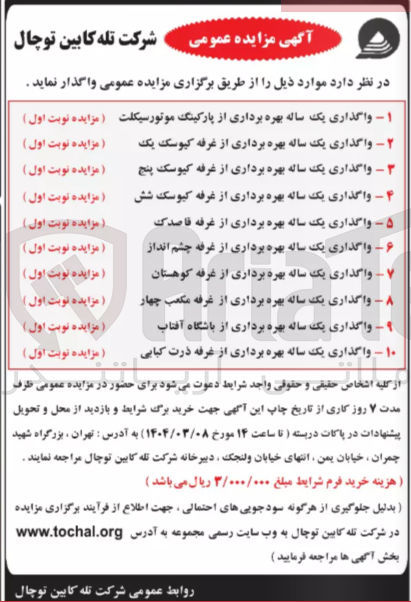 شرکت تله کابین توچال
آگهی مزایده عمومی
در نظر دارد موارد ذیل را از طریق برگزاری مزایده عمومی واگذار نماید .
۱ - واگذاری یک ساله بهره برداری از پارکینگ موتورسیکلت ( مزایده نوبت اول )
۲ - واگذاری یک ساله بهره برداری از غرفه کیوسک یک ( مزایده نوبت اول )
۳ - واگذاری یک ساله بهره برداری از غرفه کیوسک پنج ( مزایده نوبت اول )
۴ - واگذاری یک ساله بهره برداری از غرفه کیوسک شش ( مزایده نوبت اول )
۵ - واگذاری یک ساله بهره برداری از غرفه قاصدک ( مزایده نوبت اول )
۶ - واگذاری یک ساله بهره برداری از غرفه چشم انداز ( مزایده نوبت اول )
۷ - واگذاری یک ساله بهره برداری از غرفه کوهستان ( مزایده نوبت اول )
۸ - واگذاری یک ساله بهره برداری از غرفه مکعب چهار ( مزایده نوبت اول )
۹ - واگذاری یک ساله بهره برداری از باشگاه آفتاب ( مزایده نوبت اول )
۱۰ - واگذاری یک ساله بهره برداری از غرفه ذرت کبابی ( مزایده نوبت اول )
از کلیه اشخاص حقیقی و حقوقی واجد شرایط دعوت می شود برای حضور در مزایده عمومی ظرف
مدت ۷ روز کاری از تاریخ چاپ این آگهی جهت خرید برگ شرایط و بازدید از محل و تحویل
پیشنهادات در پاکات دربسته ( تا ساعت ۱۴ مورخ ۱۴۰۴/۰۳/۰۸) به آدرس : تهران ، بزرگراه شهید
چمران ، خیابان یمن ، انتهای خیابان ولنجک ، دبیرخانه شرکت تله کابین توچال مراجعه نمایند .
( هزینه خرید فرم شرایط مبلغ ۳/۰۰۰/۰۰۰ ریال می باشد )
( بدلیل جلوگیری از هرگونه سودجویی های احتمالی ، جهت اطلاع از فرآیند برگزاری مزایده
در شرکت تله کابین توچال به وب سایت رسمی مجموعه به آدرس www.tochal.org
بخش آگهی ها مراجعه فرمایید )
روابط عمومی شرکت تله کابین توچال